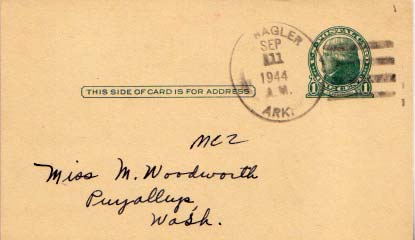 HAGLER
SEP
11
1944
A.M.
ARK.
1 1
THIS SIDE OF CARD IS FOR ADDRESS
Miss M. Woodworth
Puyallup,
Wash.